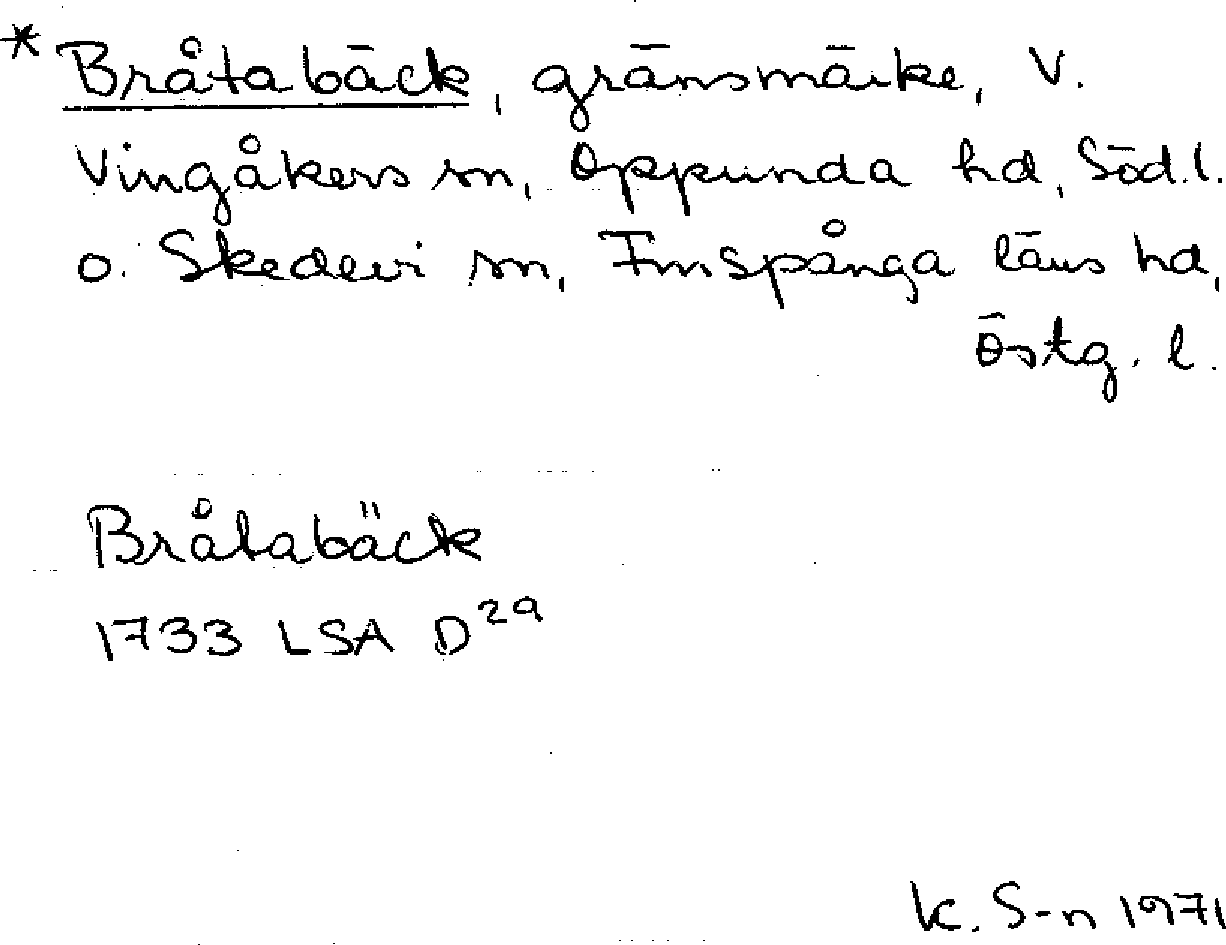 * Bråtabäck, gränsmärke, V.
Vingåkers sn, Oppunda hd, Söd.l.
o. Skedevi sn, Finspånga läns hd,
Östg. l.
Bråtabäck
1733 LSA D²⁹
K. S-n 1971